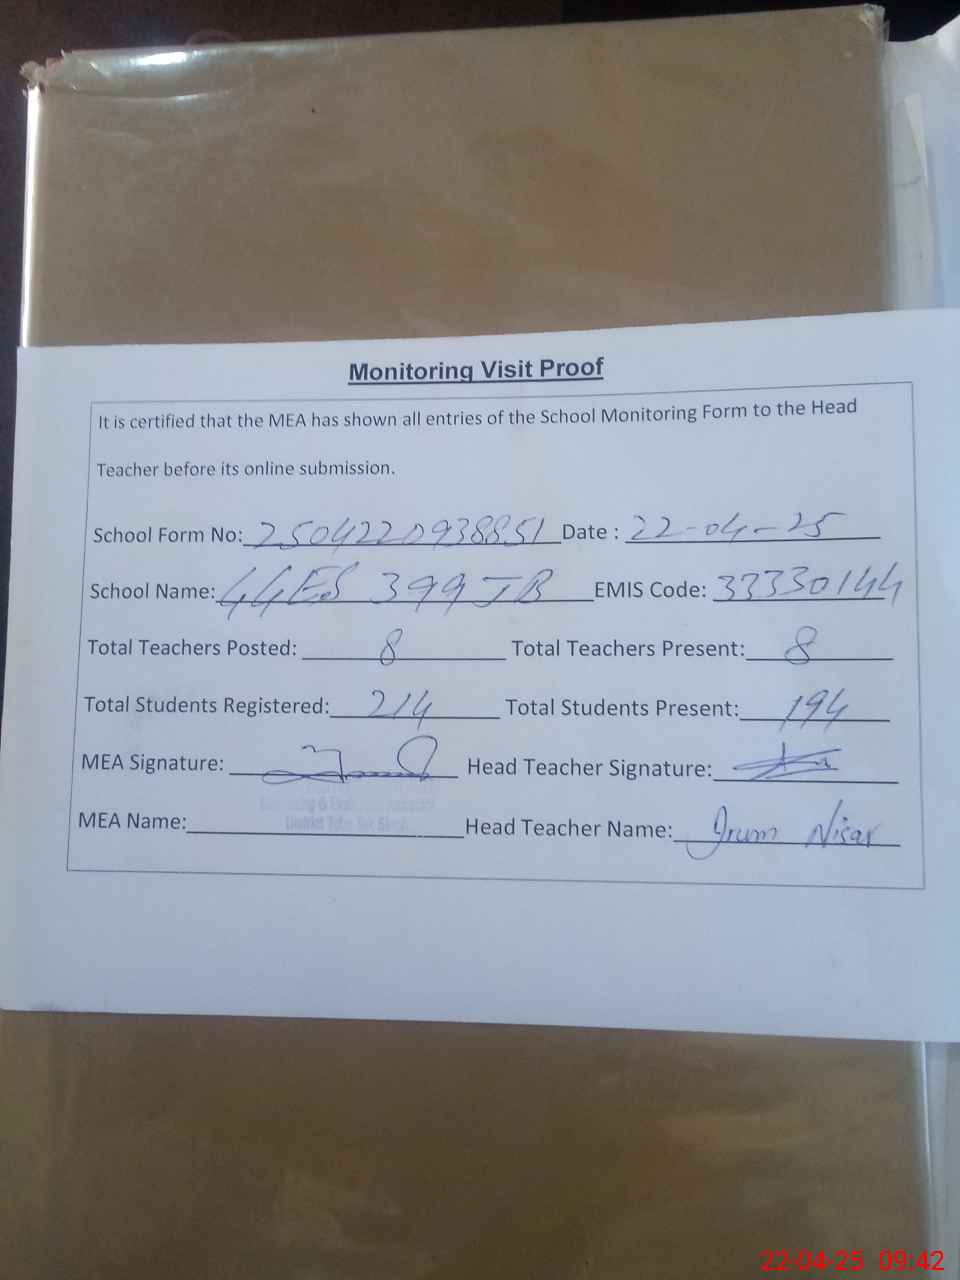 Monitoring Visit Proof
It is certified that the MEA has shown all entries of the School Monitoring Form to the Head
Teacher before its online submission.
School Form No: 2504220938851 Date : 22-04-25
School Name: GGES 399 JB EMIS Code: 33330144
Total Teachers Posted: 8 Total Teachers Present: 8
Total Students Registered: 214 Total Students Present: 194
MEA Signature: Head Teacher Signature:
District Toba Tek Singh
MEA Name: Head Teacher Name: Irum Nisar
22-04-25 09:42